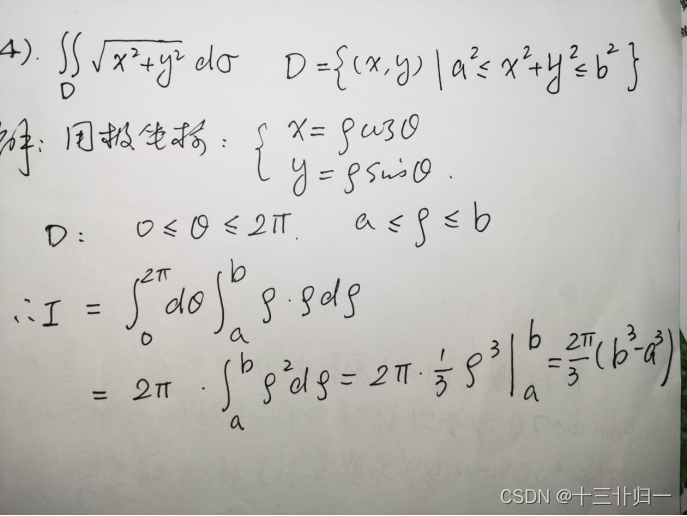 4). ∬_D √(x²+y²) dσ D={(x,y)|a²≤x²+y²≤b²}
解: 用极坐标: { x=ρcosθ
y=ρsinθ.
D: 0≤θ≤2π. a≤ρ≤b
∴I = ∫_0^{2π} dθ ∫_a^b ρ·ρdρ
= 2π · ∫_a^b ρ²dρ = 2π · 1/3 ρ³ |_a^b = 2π/3 (b³-a³)
CSDN @十三廿归一